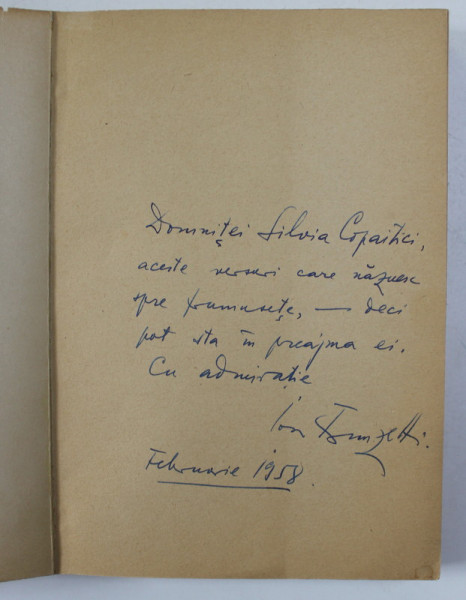 Domniței Silvia Copaitici,
aceste versuri care năzuesc
spre frumusețe, — deci
pot sta în preajma ei.
Cu admirație
Ion Frunzetti.
Februarie 1958.